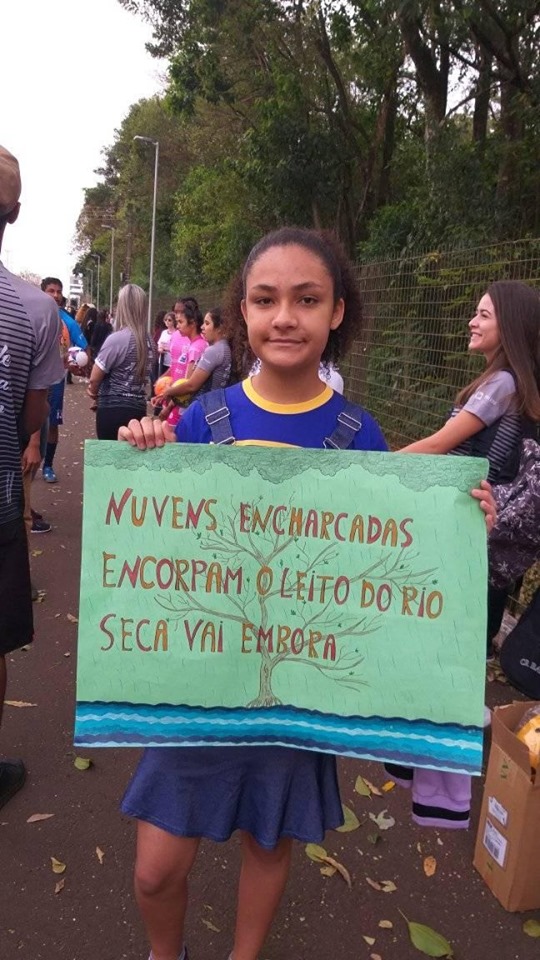 NUVENS ENCHARCADAS
ENCORPAM O LEITO DO RIO
SECA VAI EMBORA